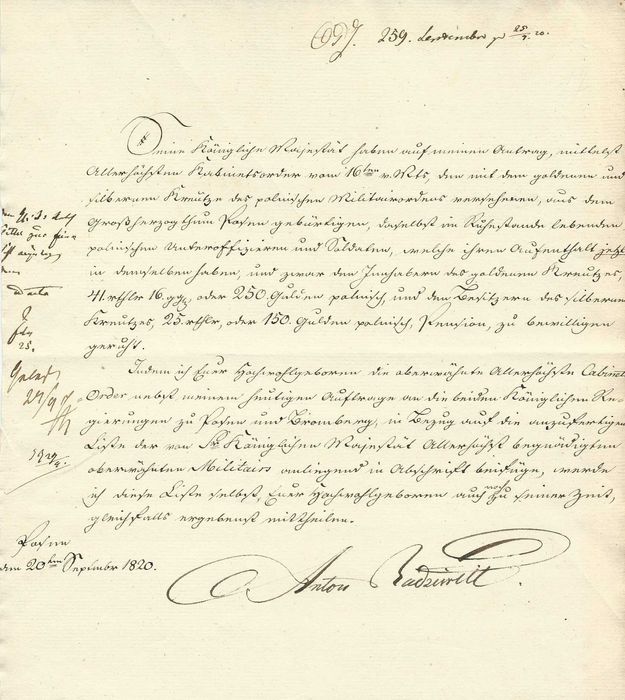 259. September pr 25/9. 20.
Seine Königliche Majestät haben auf meinen Antrag, mittelst
Allerhöchsten Kabinetsorder vom 16ten v. Mts, den mit dem goldenen und
silbernen Kreutze des polnischen Militairordens versehenen, aus dem
Großherzogthum Posen gebürtigen, daselbst im Ruhestande lebenden
polnischen Unteroffizieren und Soldaten, welche ihren Aufenthalt jetzt
in demselben haben, und zwar den Inhabern des goldenen Kreutzes,
41. rthlr 16. ggr, oder 250. Gulden polnisch, und den Besitzern des silbernen
Kreutzes, 25. rthlr, oder 150. Gulden polnisch, Pension, zu bewilligen
geruht.
Indem ich Euer Hochwohlgeboren die oberwähnte Allerhöchste Cabinet
Order nebst meinem heutigen Auftrage an die beiden Königlichen Re-
gierungen zu Posen und Bromberg, in Bezug auf die anzufertigende
Liste der von Sr Königlichen Majestät Allerhöchst begnadigten
oberwähnten Militairs anliegend in Abschrift beifüge, werde
ich diese Liste selbst, Euer Hochwohlgeboren auch noch zu seiner Zeit,
gleichfalls ergebenst mittheilen.
Posen
den 20ten Septembr 1820.
Anton Radziwill